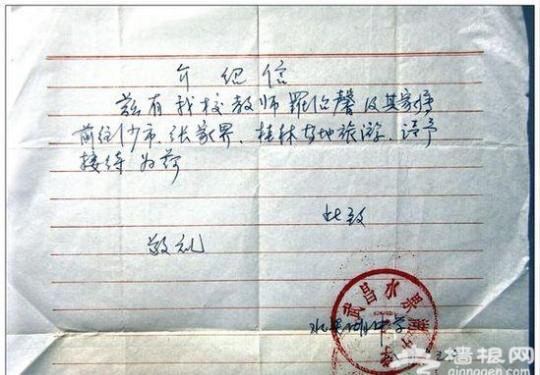 介绍信
兹有我校教师罗怡馨及其家属
前往沙市、张家界、桂林等地旅游,请予
接待为荷
此致
敬礼
武昌水果湖
水果湖中学
墙根网
qianggen.com